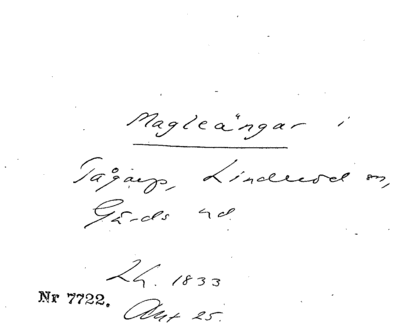 Magleängar i
Tågarp, Linderöd sn,
Gärds hd.
Lh. 1833
Nr 7722. Akt 25.